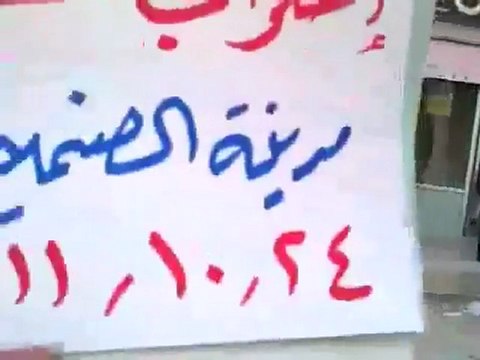 إضراب
مدينة الصنمين
٢٤/١٠/١١